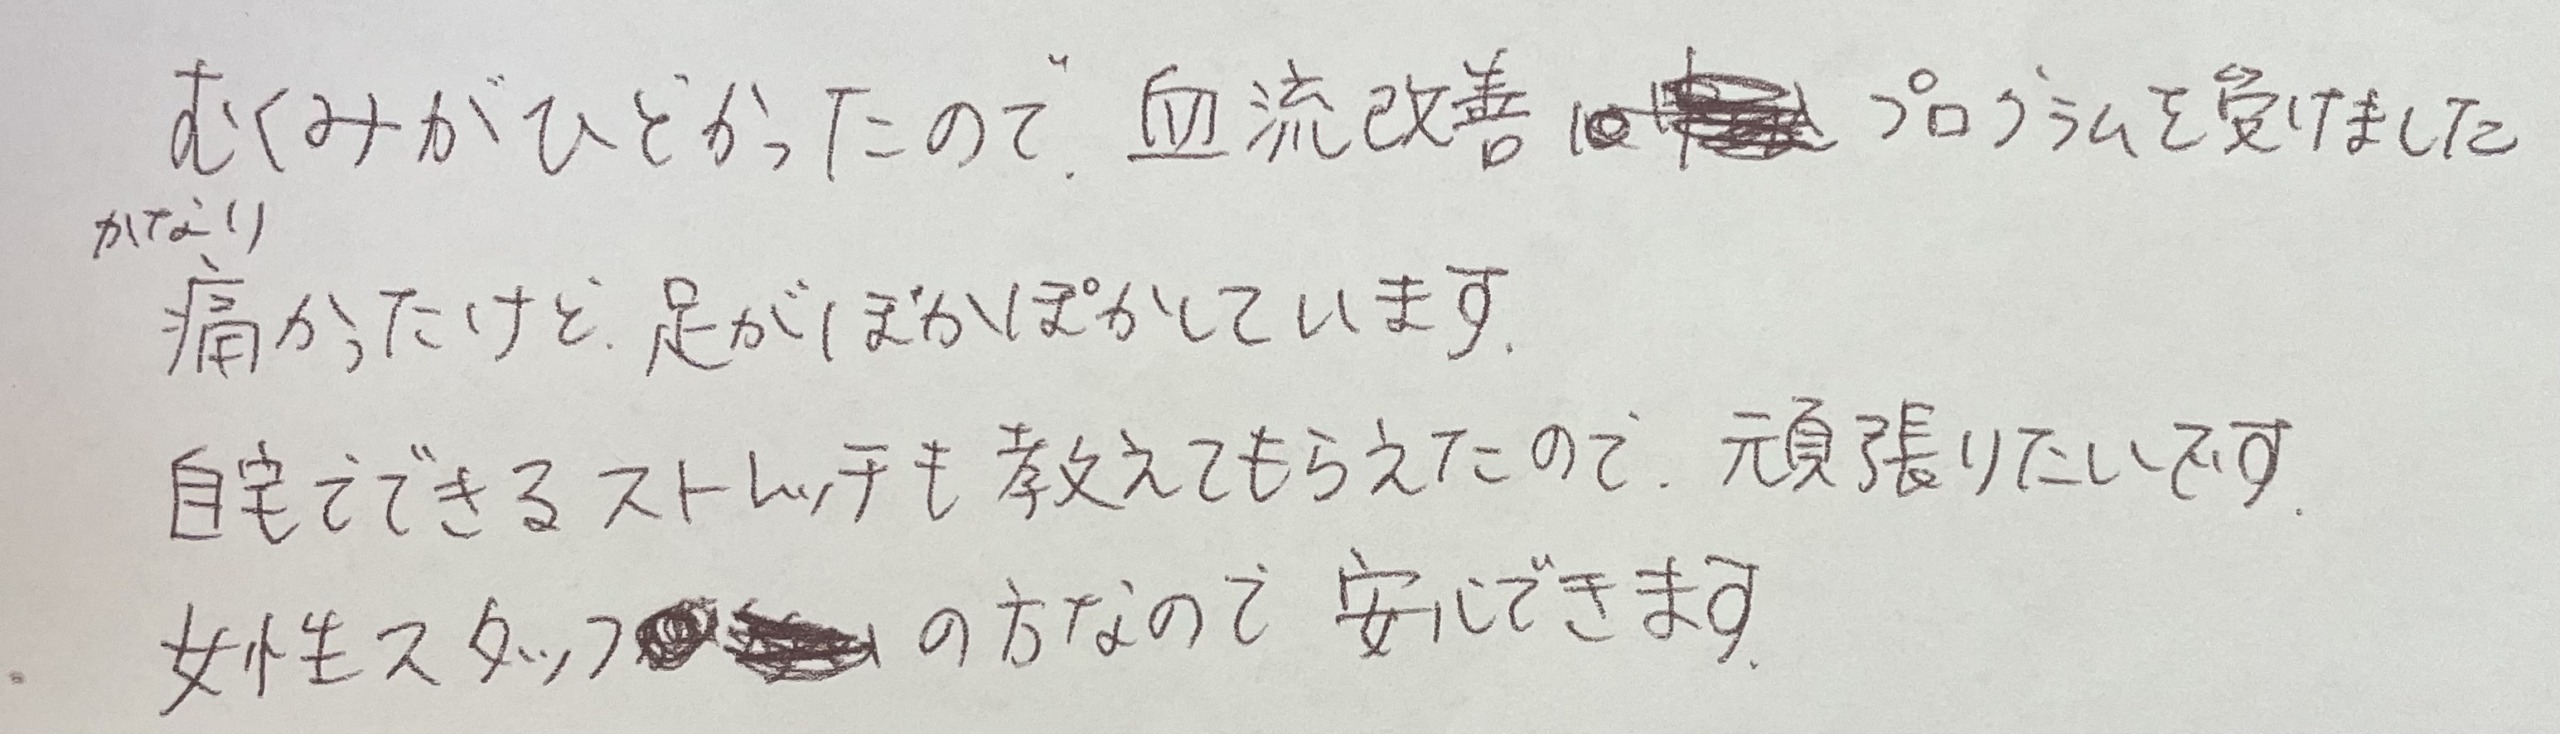 むくみがひどかったので、血流改善プログラムを受けました
かなり
痛かったけど、足がぽかぽかしています。
自宅でできるストレッチも教えてもらえたので、頑張りたいです。
女性スタッフの方なので安心できます。